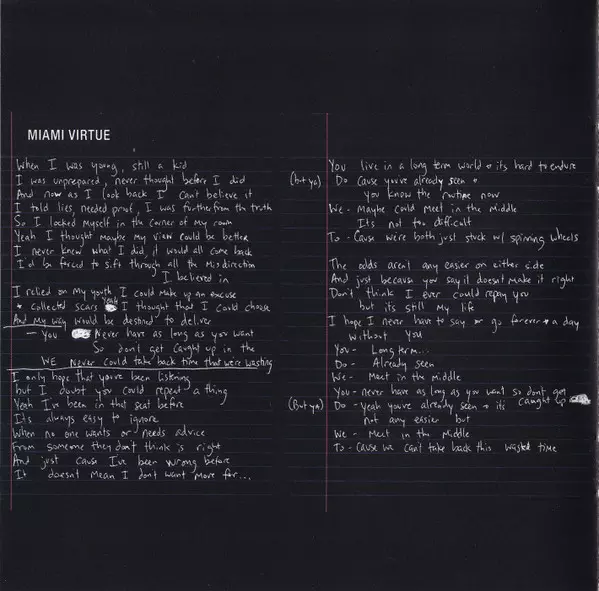 MIAMI VIRTUE
When I was young, still a kid
I was unprepared, never thought before I did
And now as I look back I can't believe it
I told lies, needed proof, I was further from the truth
So I locked myself in the corner of my room
Yeah I thought maybe my view could be better
I never knew what I did, it would all come back
I'd be forced to sift through all the misdirection
I believed in
I relied on my youth, I could make up an excuse
+ collected scars Yeah I thought that I could choose
And my way would be destined to deliver
- You Never have as long as you want
So don't get caught up in the
WE Never could take back time that were wasting
I only hope that you've been listening
but I doubt you could repeat a thing
Yeah I've been in that seat before
Its always easy to ignore
When no one wants or needs advice
From someone they don't think is right
And just cause I've been wrong before
It doesn't mean I dont want more for....
You live in a long term world + its hard to endure
(but ya) Do Cause you've already seen +
you know the routine now
We - Maybe could meet in the middle
Its not too difficult
To - Cause we're both just stuck w/ spinning wheels
The odds aren't any easier on either side
And just because you say it doesnt make it right
Don't think I ever could repay you
but its still my life
I hope I never have to say or go forever + a day
without You
You - Long term...
Do - Already seen
We - Meet in the middle
You - never have as long as you want so dont get
caught up
(But ya) Do - Yeah you've already seen + its
not any easier but
We - Meet in the Middle
To - Cause we can't take back this wasted time